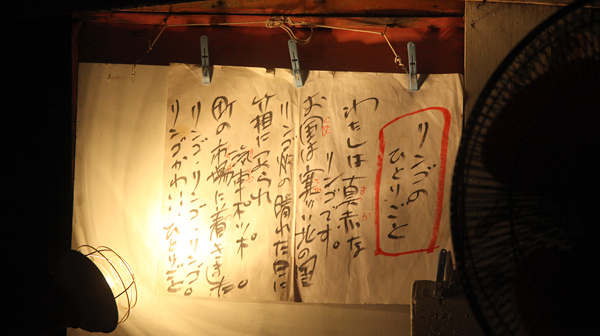 リンゴの
ひとりごと
わたしは真赤な
リンゴです。
お国は寒い北の国
リンゴ畑の晴れた日に
箱につめられ
汽車ポッポ。
町の市場に着きました。
リンゴ・リンゴ・リンゴ。
リンゴかわい…ひとりごと。